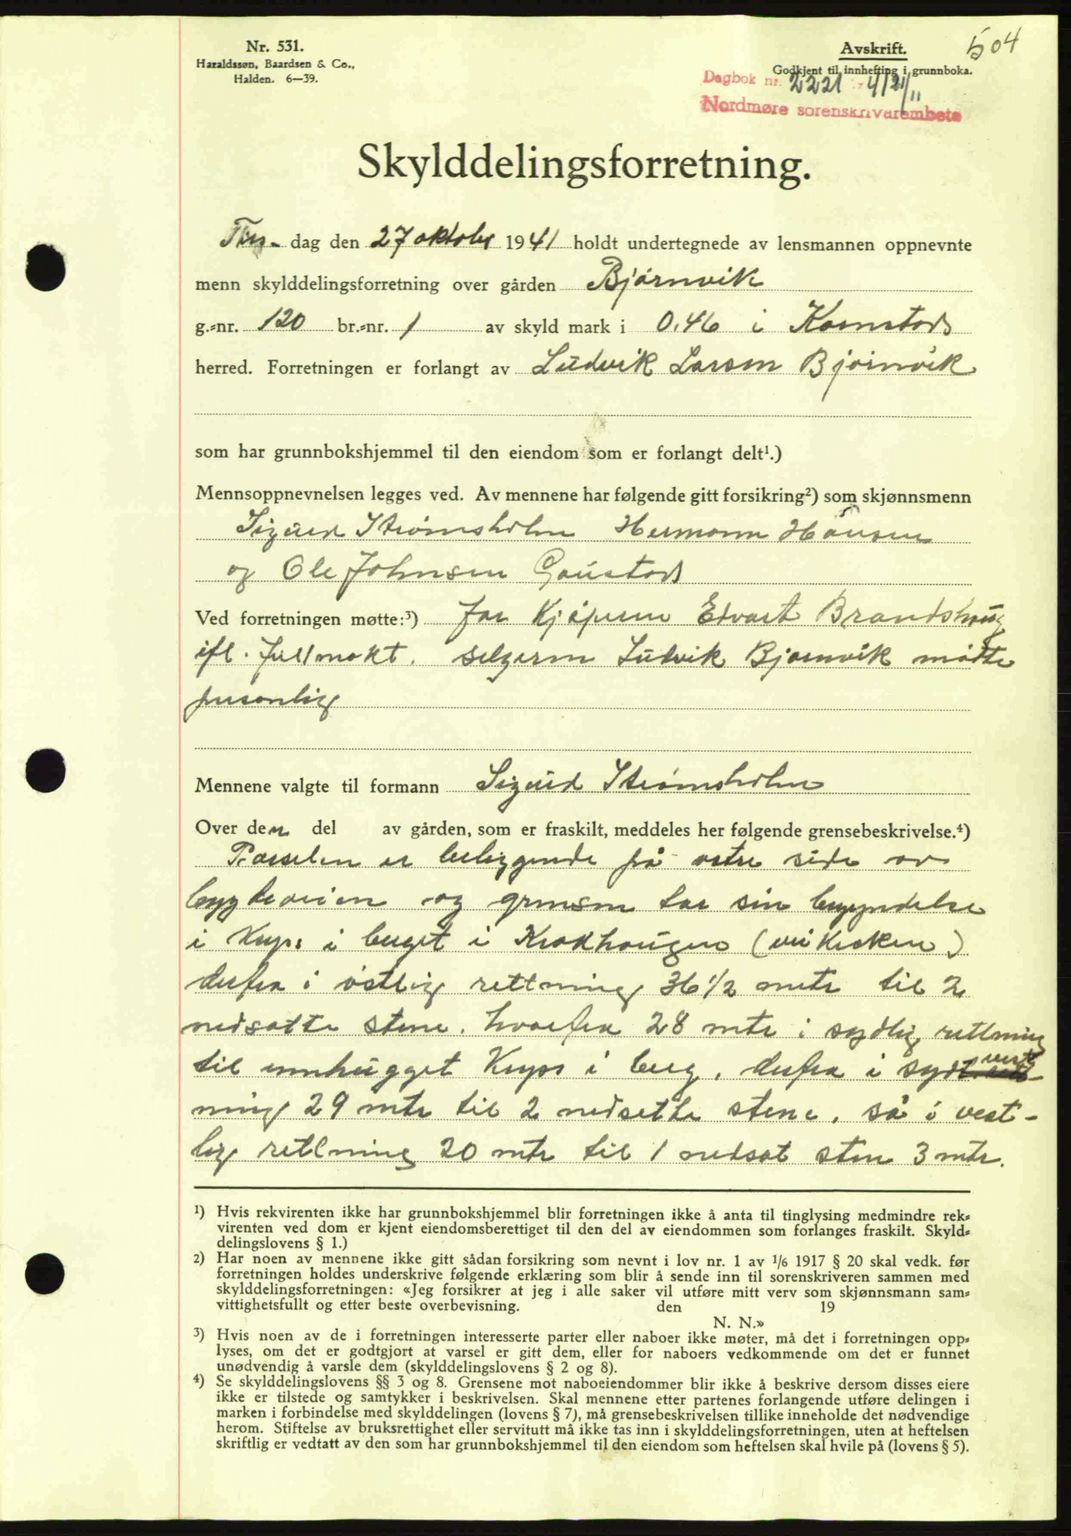 Nr. 531.
Haraldssøn, Baardsen & Co.,
Halden. 6—39.
Avskrift.
504
Godkjent til innhefting i grunnboka.
Dagbok nr. 2221 - 4/11
Nordmøre sorenskrivarembete
Skylddelingsforretning.
dag den 27 oktober 1941 holdt undertegnede av lensmannen oppnevnte
menn skylddelingsforretning over gården Bjørnvik
g.-nr. 120 br.-nr. 1 av skyld mark i 0.46 i Kornstad
herred. Forretningen er forlangt av Ludvik Larsen Bjørnvik
som har grunnbokshjemmel til den eiendom som er forlangt delt¹.)
Mennsoppnevnelsen legges ved. Av mennene har følgende gitt forsikring²) som skjønnsmenn
Sigurd Strømsholm Hermann Hansen
og Ole Johnsen Gaustad
Ved forretningen møtte:³) for Kjøperen Edvart Brandshaug
ifl. fullmakt. selgeren Ludvik Bjørnvik møtte
personlig
Mennene valgte til formann Sigurd Strømsholm
Over den del av gården, som er fraskilt, meddeles her følgende grensebeskrivelse.⁴)
Parselen er beliggende på østre side av
bygdeveien og grensen tar sin begyndelse
i Kryss i berget i Krakhaugen (veikroken)
derfra i østlig rettning 36 1/2 mtr til 2
nedsatte stene, hvorfra 28 mtr i sydlig rettning
til innhugget Kryss i berg, derfra i sydvest
ning 29 mtr til 2 nedsette stene, så i vest-
lig rettning 20 mtr til 1 nedsat sten 3 mtr.
¹) Hvis rekvirenten ikke har grunnbokshjemmel blir forretningen ikke å anta til tinglysing medmindre rek-
virenten ved dom er kjent eiendomsberettiget til den del av eiendommen som forlanges fraskilt. Skyld-
delingslovens § 1.)
²) Har noen av mennene ikke gitt sådan forsikring som nevnt i lov nr. 1 av 1/6 1917 § 20 skal vedk. før
forretningen holdes underskrive følgende erklæring som blir å sende inn til sorenskriveren sammen med
skylddelingsforretningen: «Jeg forsikrer at jeg i alle saker vil utføre mitt verv som skjønnsmann sam-
vittighetsfullt og etter beste overbevisning. den 19
N. N.»
³) Hvis noen av de i forretningen interesserte parter eller naboer ikke møter, må det i forretningen opp-
lyses, om det er godtgjort at varsel er gitt dem, eller for naboers vedkommende om det er funnet
unødvendig å varsle dem (skylddelingslovens § 2 og 8).
⁴) Se skylddelingslovens §§ 3 og 8. Grensene mot naboeiendommer blir ikke å beskrive dersom disses eiere
ikke er tilstede og samtykker i beskrivelsen. Skal mennene etter partenes forlangende utføre delingen i
marken i forbindelse med skylddelingen (lovens § 7), må grensebeskrivelsen tillike inneholde det nødvendige
herom. Stiftelse av bruksrettighet eller servitutt må ikke tas inn i skylddelingsforretningen, uten at heftelsen
skriftlig er vedtatt av den som har grunnbokshjemmel til den eiendom som heftelsen skal hvile på (lovens § 5).